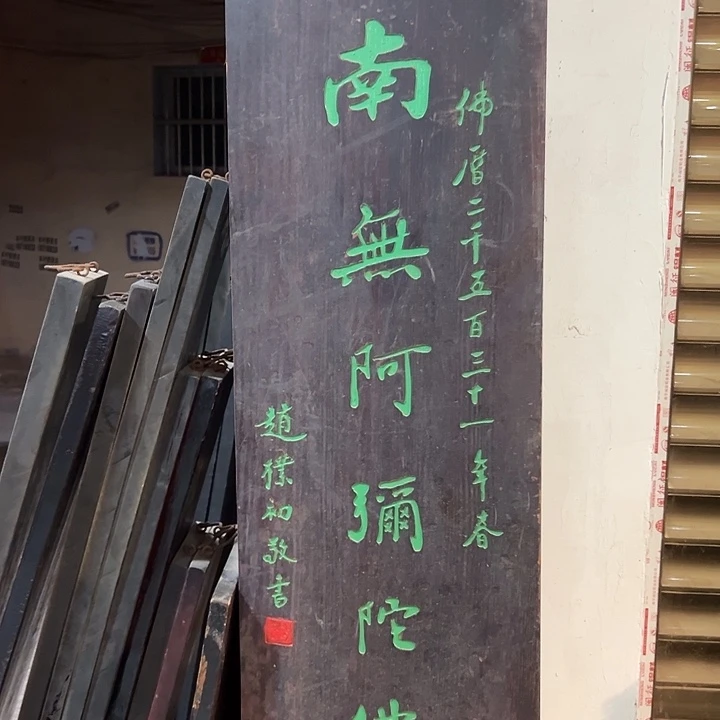 佛曆二千五百三十一年春
南無阿彌陀佛
趙樸初敬書